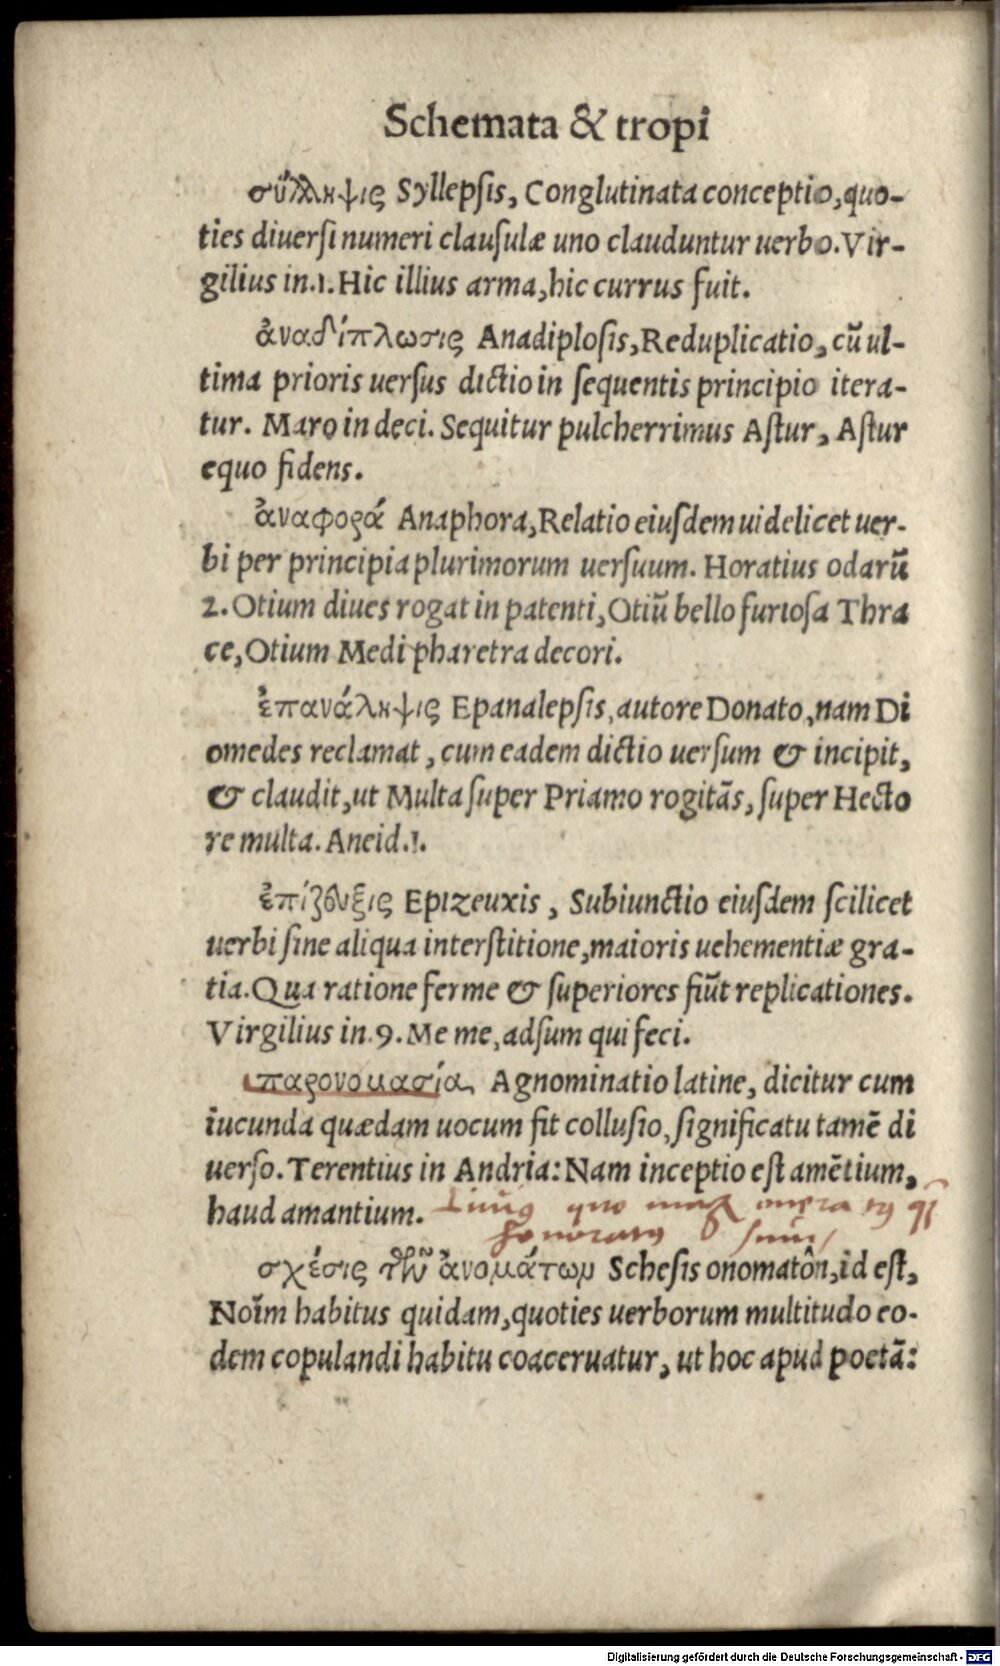 Schemata & tropi
σύλληψις Syllepſis, Conglutinata conceptio, quo-
ties diuerſi numeri clauſulæ uno clauduntur uerbo. Vir-
gilius in.1. Hic illius arma, hic currus fuit.
ἀναδίπλωσις Anadiploſis, Reduplicatio, cū ul-
tima prioris uerſus dictio in ſequentis principio itera-
tur. Maro in deci. Sequitur pulcherrimus Aſtur, Aſtur
equo fidens.
ἀναφορά Anaphora, Relatio eiuſdem uidelicet uer-
bi per principia plurimorum uerſuum. Horatius odarū
2. Otium diues rogat in patenti, Otiū bello furioſa Thra
ce, Otium Medi pharetra decori.
ἐπανάληψις Epanalepſis, autore Donato, nam Di
omedes reclamat, cum eadem dictio uerſum & incipit,
& claudit, ut Multa ſuper Priamo rogitãs, ſuper Hecto
re multa. Aneid.1.
ἐπίζευξις Epizeuxis, Subiunctio eiuſdem ſcilicet
uerbi ſine aliqua interſtitione, maioris uehementiæ gra-
tia. Qua ratione ferme & ſuperiores fiūt replicationes.
Virgilius in.9. Me me, adſum qui feci.
παρονομασία Agnominatio latine, dicitur cum
iucunda quædam uocum fit colluſio, ſignificatu tamē di
uerſo. Terentius in Andria: Nam inceptio eſt amētium,
haud amantium.
σχέσις τῶν ἀνομάτωμ Scheſis onomatôn, id eſt,
Noīm habitus quidam, quoties uerborum multitudo eo-
dem copulandi habitu coaceruatur, ut hoc apud poetã:
Digitalisierung gefördert durch die Deutsche Forschungsgemeinschaft - DFG